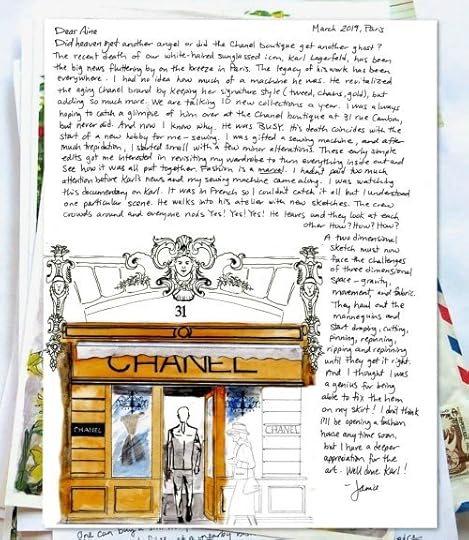 March 2019, Paris
Dear Aine
Did heaven get another angel or did the Chanel boutique get another ghost?
The recent death of our white-haired sunglassed icon, Karl Lagerfeld, has been
the big news fluttering by on the breeze in Paris. The legacy of his work has been
everywhere. I had no idea how much of a machine he was. He revitalized
the aging Chanel brand by keeping her signature style (tweed, chains, gold), but
adding so much more. We are talking 10 new collections a year. I was always
hoping to catch a glimpse of him over at the Chanel boutique at 31 rue Cambon,
but never did. And now I know why. He was BUSY. His death coincides with the
start of a new hobby for me - sewing. I was gifted a sewing machine, and after
much trepidation, I started small with a few minor alterations. These early simple
edits got me interested in revisiting my wardrobe to turn everything inside out and
see how it was all put together. Fashion is a marvel. I hadn't paid too much
attention before Karl's news and my sewing machine came along. I was watching
this documentary on Karl. It was in French so I couldn't catch it all but I understand
one particular scene. He walks into his atelier with new sketches. The crew
crowds around and everyone nods Yes! Yes! Yes! He leaves and they look at each
other How? How? How?
A two dimensional
sketch must now
face the challenges
of three dimensional
space - gravity,
movement, and fabric.
They haul out the
mannequins and
start draping, cutting,
pinning, repinning,
ripping and repinning
until they get it right.
And I thought I was
a genius for being
able to fix the hem
on my skirt! I don't think
I'll be opening a fashion
house any time soon,
but I have a deeper
appreciation for the
art. Well done Karl!
- Janice
31
CHANEL
CHANEL
CHANEL
one can buy a